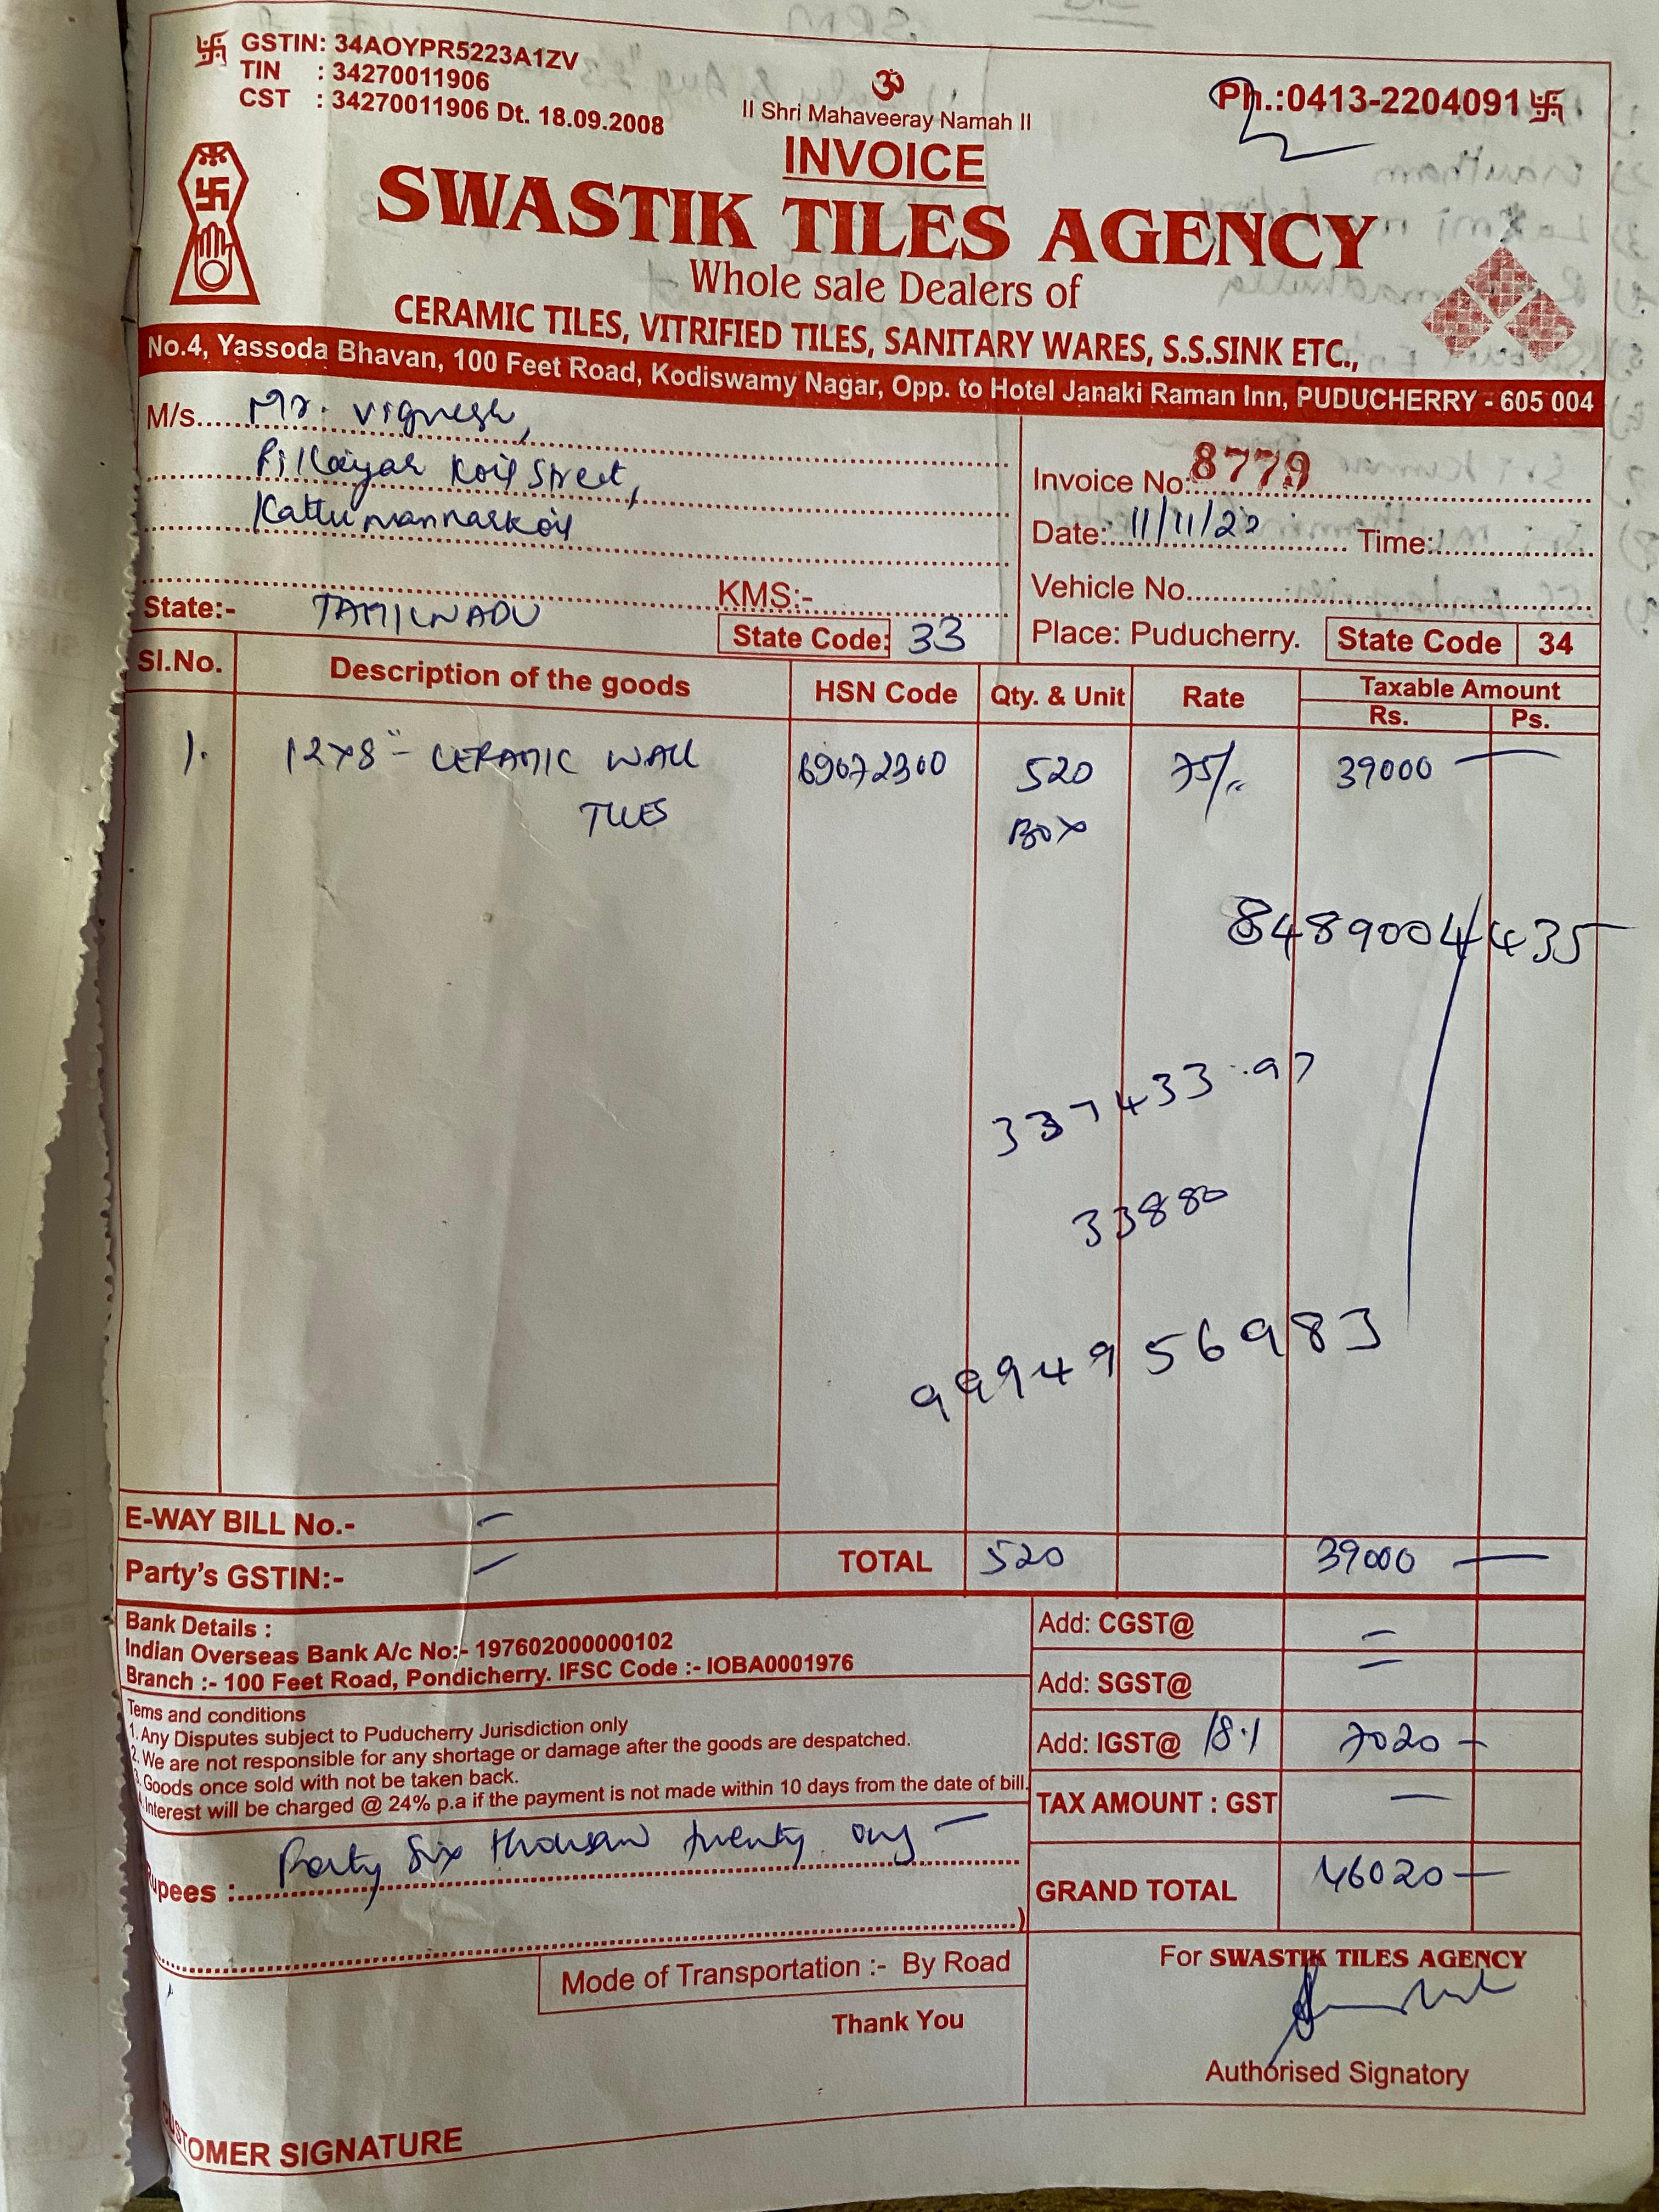 GSTIN: 34AOYPR5223A1ZV
TIN : 34270011906
CST : 34270011906 Dt. 18.09.2008
ॐ
II Shri Mahaveeray Namah II
Ph.:0413-2204091
INVOICE
SWASTIK TILES AGENCY
Whole sale Dealers of
CERAMIC TILES, VITRIFIED TILES, SANITARY WARES, S.S.SINK ETC.,
No.4, Yassoda Bhavan, 100 Feet Road, Kodiswamy Nagar, Opp. to Hotel Janaki Raman Inn, PUDUCHERRY - 605 004
M/s. Mr. Vignesh,
Pillaiyar Koil Street,
Kattumannarkoil
State:- TAMILNADU
KMS:-
State Code: 33
Invoice No: 8779
Date: 11/11/22 Time:
Vehicle No.
Place: Puducherry. State Code 34
Sl.No. Description of the goods HSN Code Qty. & Unit Rate Taxable Amount
Rs. Ps.
1. 12x8" - CERAMIC WALL 69072300 520 75/- 39000 —
TILES BOX
8489004435
337433..97
33880
9994956983
E-WAY BILL No.- —
Party's GSTIN:- — TOTAL 520 39000 —
Bank Details :
Indian Overseas Bank A/c No:- 197602000000102
Branch :- 100 Feet Road, Pondicherry. IFSC Code :- IOBA0001976
Tems and conditions
1. Any Disputes subject to Puducherry Jurisdiction only
2. We are not responsible for any shortage or damage after the goods are despatched.
3. Goods once sold with not be taken back.
4. Interest will be charged @ 24% p.a if the payment is not made within 10 days from the date of bill.
Add: CGST@ —
Add: SGST@ —
Add: IGST@ 18% 7020 —
TAX AMOUNT : GST —
GRAND TOTAL 46020 —
upees : Forty Six thousan twenty only —
)
Mode of Transportation :- By Road
Thank You
For SWASTIK TILES AGENCY
Authorised Signatory
CUSTOMER SIGNATURE